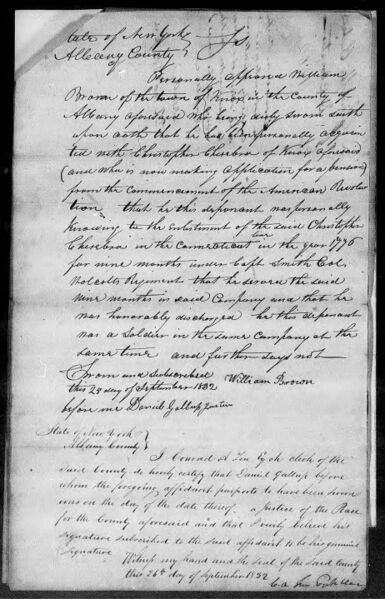 State of New York } ss
Albany County }
Personally appeared William
Brown of the town of Knox in the County of
Albany aforesaid who being duly sworn saith
upon oath that he has been personally acquain
ted with Christopher Chesebro of Knox aforesaid
(and who is now making application for a pension)
from the commencement of the American Revolu
tion that he this deponent was personally
knowing to the enlistment of the said Christopher
Chesebro in the Connecticut in the year 1776
for nine months under Capt Smith Col
Wolcotts Regiment that he served the said
nine months in said Company and that he
was honorably discharged he this deponent
was a soldier in the same company at the
same time and further says not
Sworn and Subscribed William Brown
this 24 day of September 1832
before me Daniel Gallup Justice
State of New York }
Albany County }
I Conrad A Ten Eyck clerk of the
said County do hereby certify that Daniel Gallup before
whom the foregoing affidavit purports to have been sworn
was on the day of the date thereof a justice of the Peace
for the County aforesaid and that I verily believe his
signature subscribed to the said affidavit to be his genuine
signature
Witness my hand and the seal of the said County
this 26th day of September 1832
C A Ten Eyck Clerk